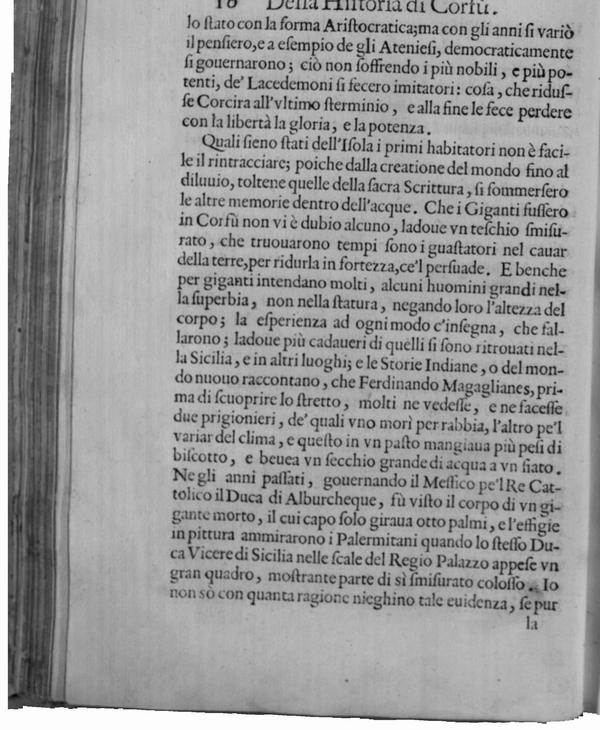 Della Historia di Corfù.
lo ſtato con la forma Ariſtocratica;ma con gli anni ſi variò
il penſiero,e a eſempio de gli Ateniesi, democraticamente
ſi gouernarono; ciò non ſoffrendo i più nobili, e più po-
tenti, de' Lacedemoni ſi fecero imitatori: coſa, che riduſ-
ſe Corcira all'vltimo ſterminio, e alla fine le fece perdere
con la libertà la gloria, e la potenza.
Quali ſieno ſtati dell'Iſola i primi habitatori non è faci-
le il rintracciare; poiche dalla creatione del mondo fino al
diluuio, toltene quelle della ſacra Scrittura, ſi ſommerſero
le altre memorie dentro dell'acque. Che i Giganti fuſſero
in Corfù non vi è dubio alcuno, ladoue vn teſchio ſmiſu-
rato, che truouarono tempi ſono i guaſtatori nel cauar
della terre,per ridurla in fortezza,ce'l perſuade. E benche
per giganti intendano molti, alcuni huomini grandi nel-
la ſuperbia, non nella ſtatura, negando loro l'altezza del
corpo; la eſperienza ad ogni modo c'inſegna, che fal-
larono; ladoue più cadaueri di quelli ſi ſono ritrouati nel-
la Sicilia, e in altri luoghi; e le Storie Indiane, o del mon-
do nuouo raccontano, che Ferdinando Magaglianes, pri-
ma di ſcuoprire lo ſtretto, molti ne vedeſſe, e ne faceſſe
due prigionieri, de' quali vno morì per rabbia, l'altro pe'l
variar del clima, e queſto in vn paſto mangiaua più peſi di
biſcotto, e beuea vn ſecchio grande di acqua a vn fiato.
Negli anni paſſati, gouernando il Meſſico pe'l Re Cat-
tolico il Duca di Alburcheque, fù viſto il corpo di vn gi-
gante morto, il cui capo ſolo giraua otto palmi, e l'effigie
in pittura ammirarono i Palermitani quando lo ſteſſo Du-
ca Vicere di Sicilia nelle ſcale del Regio Palazzo appeſe vn
gran quadro, moſtrante parte di sì ſmiſurato coloſſo. Io
non sò con quanta ragione nieghino tale euidenza, ſe pur
la